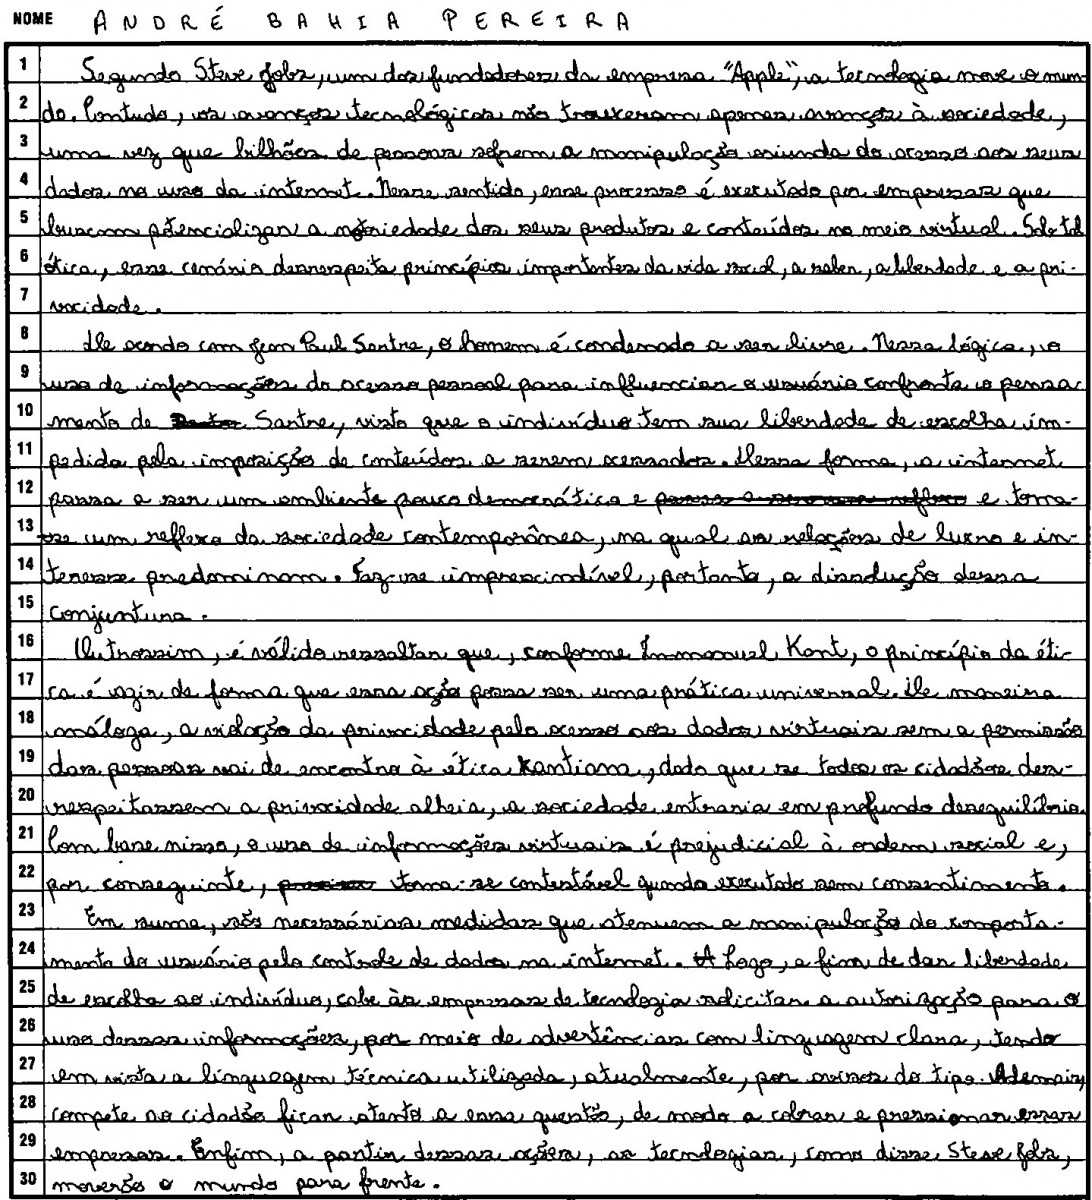 NOME ANDRÉ BAHIA PEREIRA
1 Segundo Steve Jobs, um dos fundadores da empresa "Apple", a tecnologia move o mun
2 do. Contudo, os avanços tecnológicos não trouxeram apenas avanços à sociedade,
3 uma vez que bilhões de pessoas sofrem a manipulação oriunda do acesso aos seus
4 dados no uso da internet. Nesse sentido, esse processo é executado por empresas que
5 buscam potencializar a notoriedade dos seus produtos e conteúdos no meio virtual. Sob tal
6 ótica, esse cenário desrespeita princípios importantes da vida social, a saber, a liberdade e a pri-
7 vacidade.
8 De acordo com Jean Paul Sartre, o homem é condenado a ser livre. Nessa lógica, o
9 uso de informações do acesso pessoal para influenciar o usuário confronta o pensa
10 mento de Sartre, visto que o indivíduo tem sua liberdade de escolha im-
11 pedida pela imposição de conteúdos a serem acessados. Dessa forma, a internet
12 passa a ser um ambiente pouco democrático e passa a ser um reflexo e torna-
13 se um reflexo da sociedade contemporânea, na qual as relações de lucro e in-
14 teresse predominam. Faz-se imprescindível, portanto, a dissolução dessa
15 conjuntura.
16 Outrossim, é válido ressaltar que, conforme Immanuel Kant, o princípio da éti-
17 ca é agir de forma que essa ação possa ser uma prática universal. De maneira
18 análoga, a violação da privacidade pelo acesso aos dados virtuais sem a permissão
19 das pessoas vai de encontro à ética kantiana, dado que se todos os cidadãos des-
20 respeitassem a privacidade alheia, a sociedade entraria em profundo desequilíbrio.
21 Com base nisso, o uso de informações virtuais é prejudicial à ordem social e,
22 por conseguinte, torna-se contestável quando executado sem consentimento.
23 Em suma, são necessárias medidas que atenuem a manipulação do comporta-
24 mento do usuário pelo controle de dados na internet. Logo, a fim de dar liberdade
25 de escolha ao indivíduo, cabe às empresas de tecnologia solicitar a autorização para o
26 uso dessas informações, por meio de advertências com linguagem clara, tendo
27 em vista a linguagem técnica utilizada, atualmente, por avisos do tipo. Ademais,
28 compete ao cidadão ficar atento a essa questão, de modo a cobrar e pressionar essas
29 empresas. Enfim, a partir dessas ações, as tecnologias, como disse Steve Jobs,
30 moverão o mundo para frente.